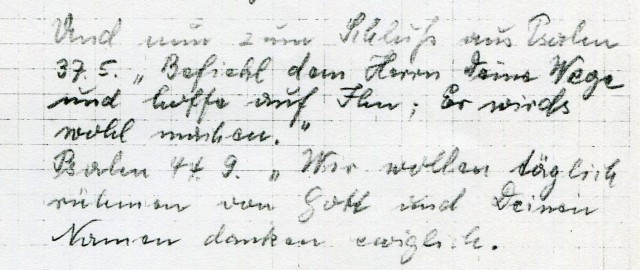 Und nun zum Schluß aus Psalm
37. 5. „Befiehl dem Herrn Deine Wege
und hoffe auf Ihn; Er wirds
wohl machen."
Psalm 44. 9. „Wir wollen täglich
rühmen von Gott und Deinen
Namen danken ewiglich.